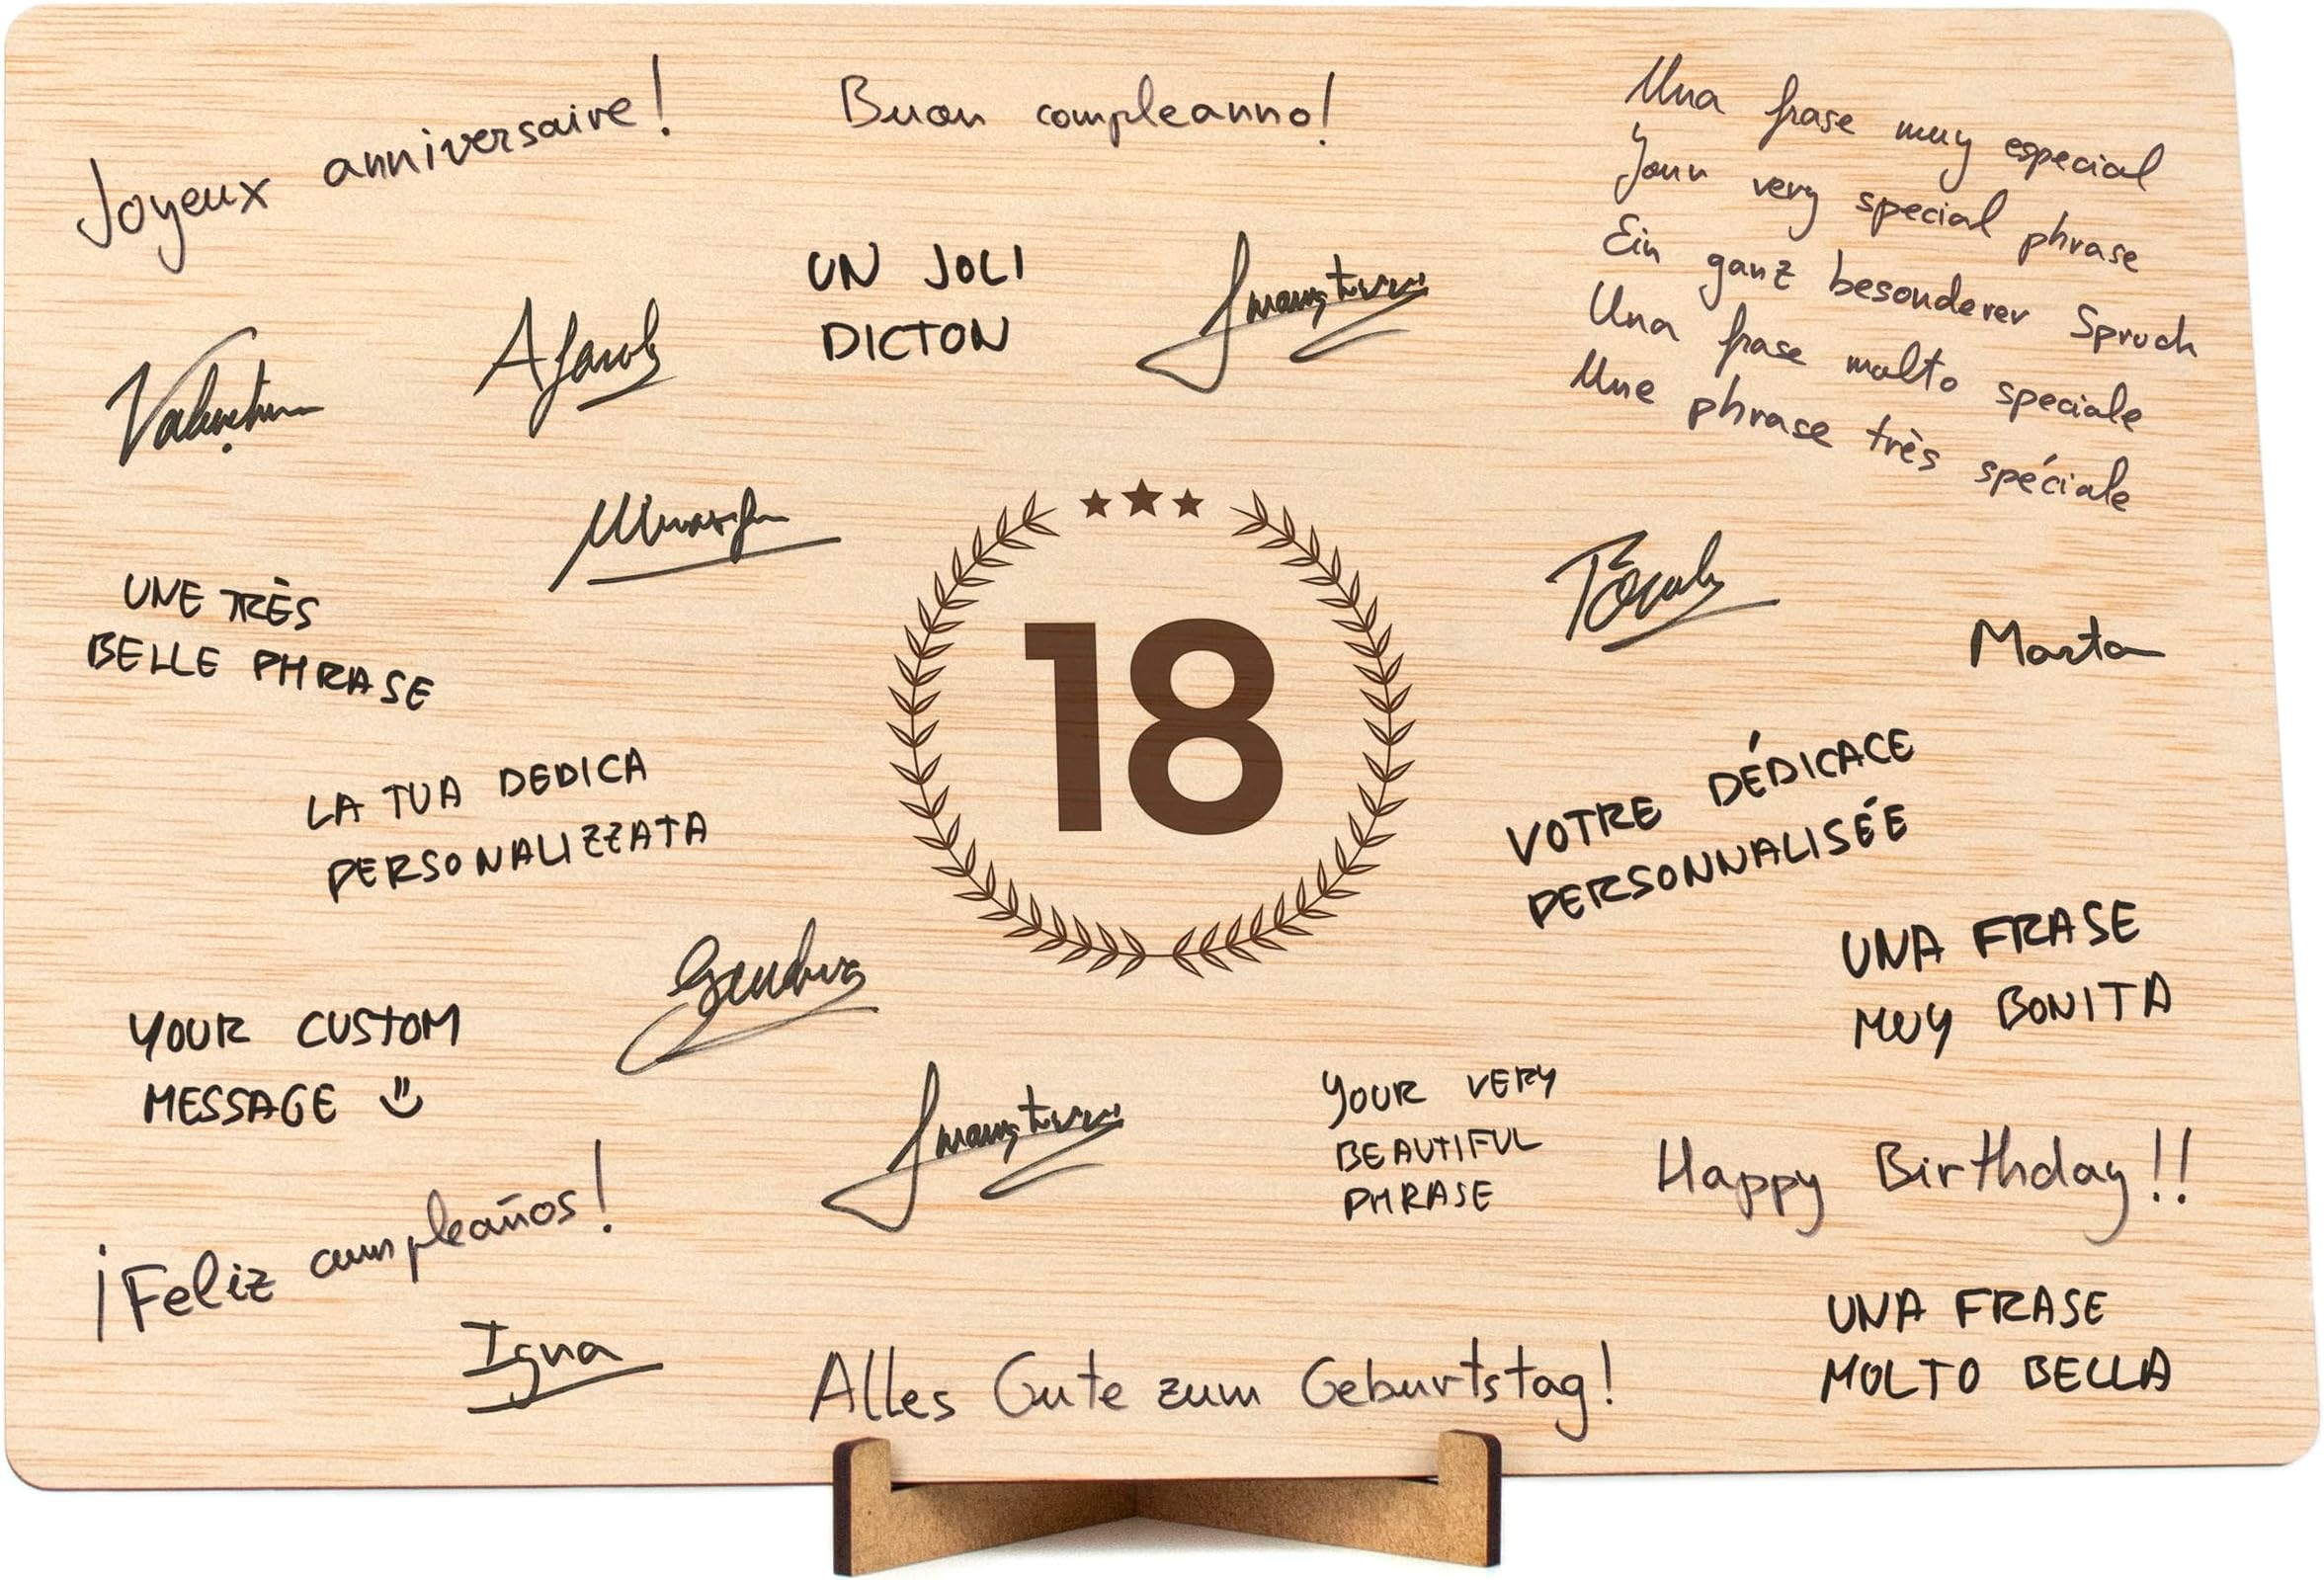 Joyeux anniversaire!
Buon compleanno!
Una frase muy especial
Your very special phrase
Ein ganz besonderer Spruch
Una frase molto speciale
Une phrase très spéciale
UN JOLI
DICTON
UNE TRÈS
BELLE PHRASE
18
Marta
LA TUA DEDICA
PERSONALIZZATA
VOTRE DÉDICACE
PERSONNALISÉE
UNA FRASE
MUY BONITA
YOUR CUSTOM
MESSAGE
YOUR VERY
BEAUTIFUL
PHRASE
Happy Birthday!!
¡Feliz cumpleaños!
Igna
Alles Gute zum Geburtstag!
UNA FRASE
MOLTO BELLA